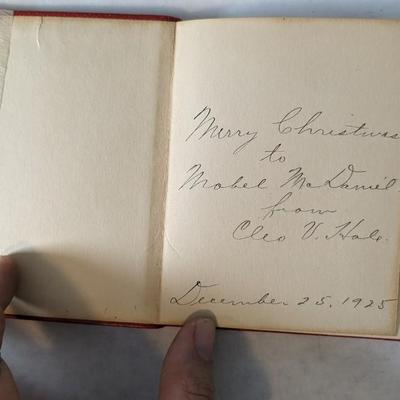 Merry Christmas
to
Mabel McDaniel.
from
Cleo V. Hale.
December 25, 1925